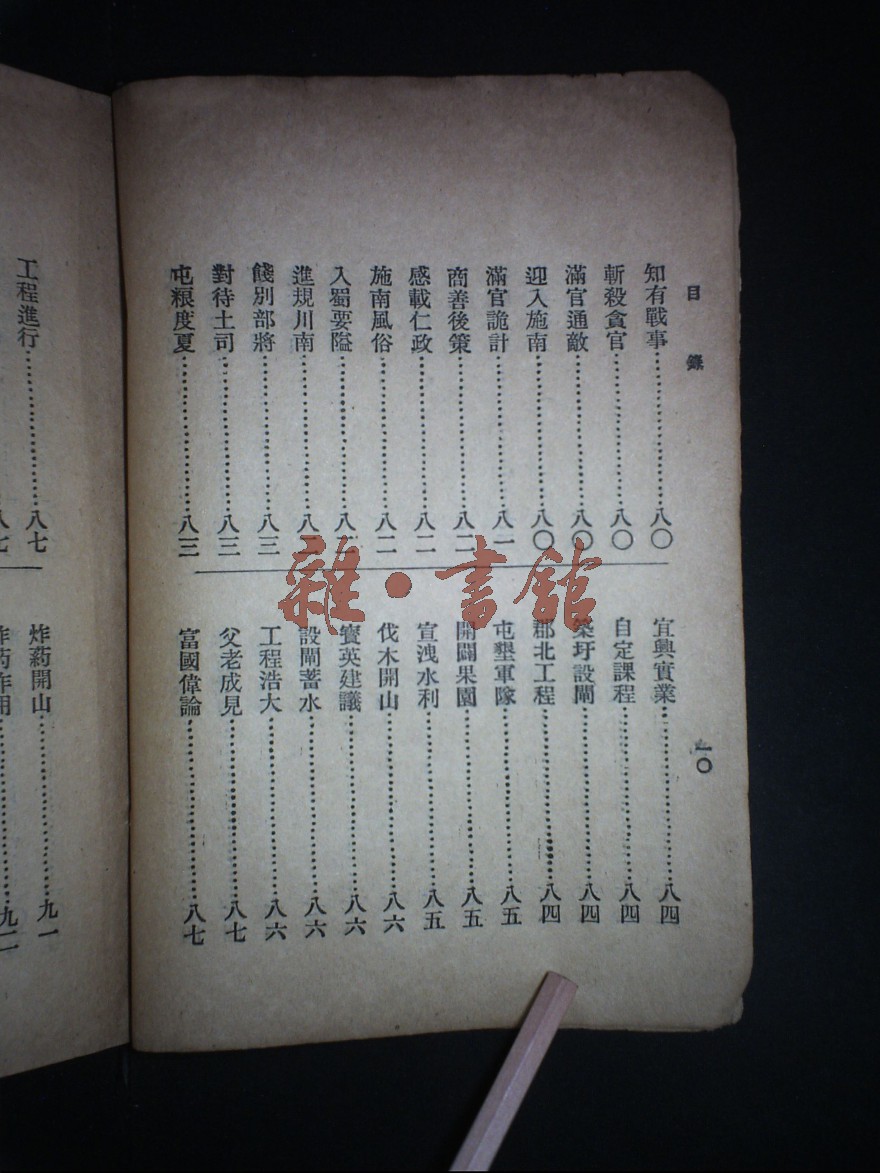 目錄
知有戰事……八〇
斬殺貪官……八〇
滿官通敵……八〇
迎入施南……八〇
滿官詭計……八一
商善後策……八二
感載仁政……八二
施南風俗……八二
入蜀要隘……八二
進規川南……八三
餞別部將……八三
對待土司……八三
屯粮度夏……八三
宜興實業……八四
自定課程……八四
築圩設閘……八四
郡北工程……八四
屯墾軍隊……八五
開闢果園……八五
宣洩水利……八五
伐木開山……八六
寶英建議……八六
設閘蓄水……八六
工程浩大……八六
父老成見……八七
富國偉論……八七
一〇
工程進行……八七
炸葯開山……九一
雜·書館